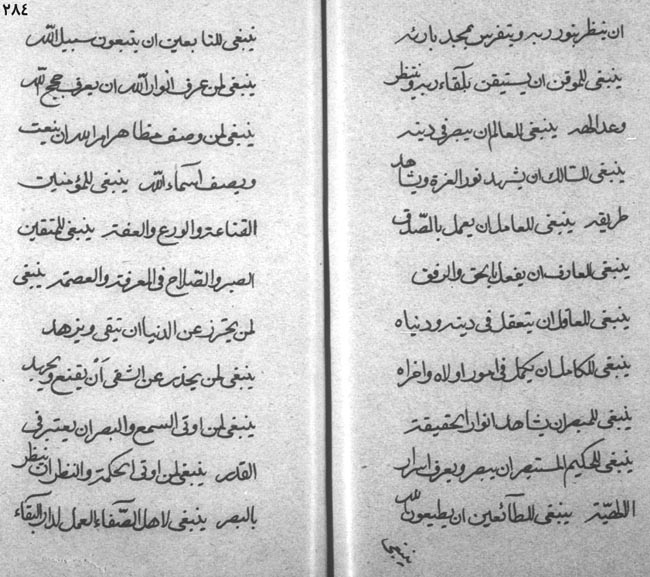 ٢٨٤
ان ينظر بنور ربه ويتفرس بمجد بارئه
ينبغي للموقن ان يستيقن بلقاء ربه وينتظر
وعد الهه ينبغي للعالم ان يبصر في دينه
ينبغي للسالك ان يشهد نور العزة ويشاهد
طريقه ينبغي للعامل ان يعمل بالصدق
ينبغي للعارف ان يفعل بالحق والرفق
ينبغي للعاقل ان يتعقل في دينه ودنياه
ينبغي للكامل ان يكمل في امور اولاه واخراه
ينبغي للمبصر ان يشاهد انوار الحقيقة
ينبغي للحكيم المستبصر ان يبصر ويعرف اسرار
اللهية ينبغي للطآئعين ان يطيعون لله
ينبغي
ينبغي للتابعين ان يتبعون سبيل الله
ينبغي لمن عرف انوار الله ان يعرف حجج لله
ينبغي لمن وصف مظاهر امر الله ان ينعت
ويصف اسمآء الله ينبغي للمؤمنين
القناعة والورع والعفة ينبغي للمتقين
الصبر والصّلاح في المعرفة والعصمة ينبغي
لمن يحترز عن الدنيا ان يتقي ويزهد
ينبغي لمن يحذر عن الشقى أن يقنع ويجهد
ينبغي لمن اوتي السمع والبصر ان يعتبر في
القدر ينبغي لمن اوتي الحكمة والنظر ان ينظر
بالبصر ينبغي لاهل الصّفآء العمل لدار البقآء